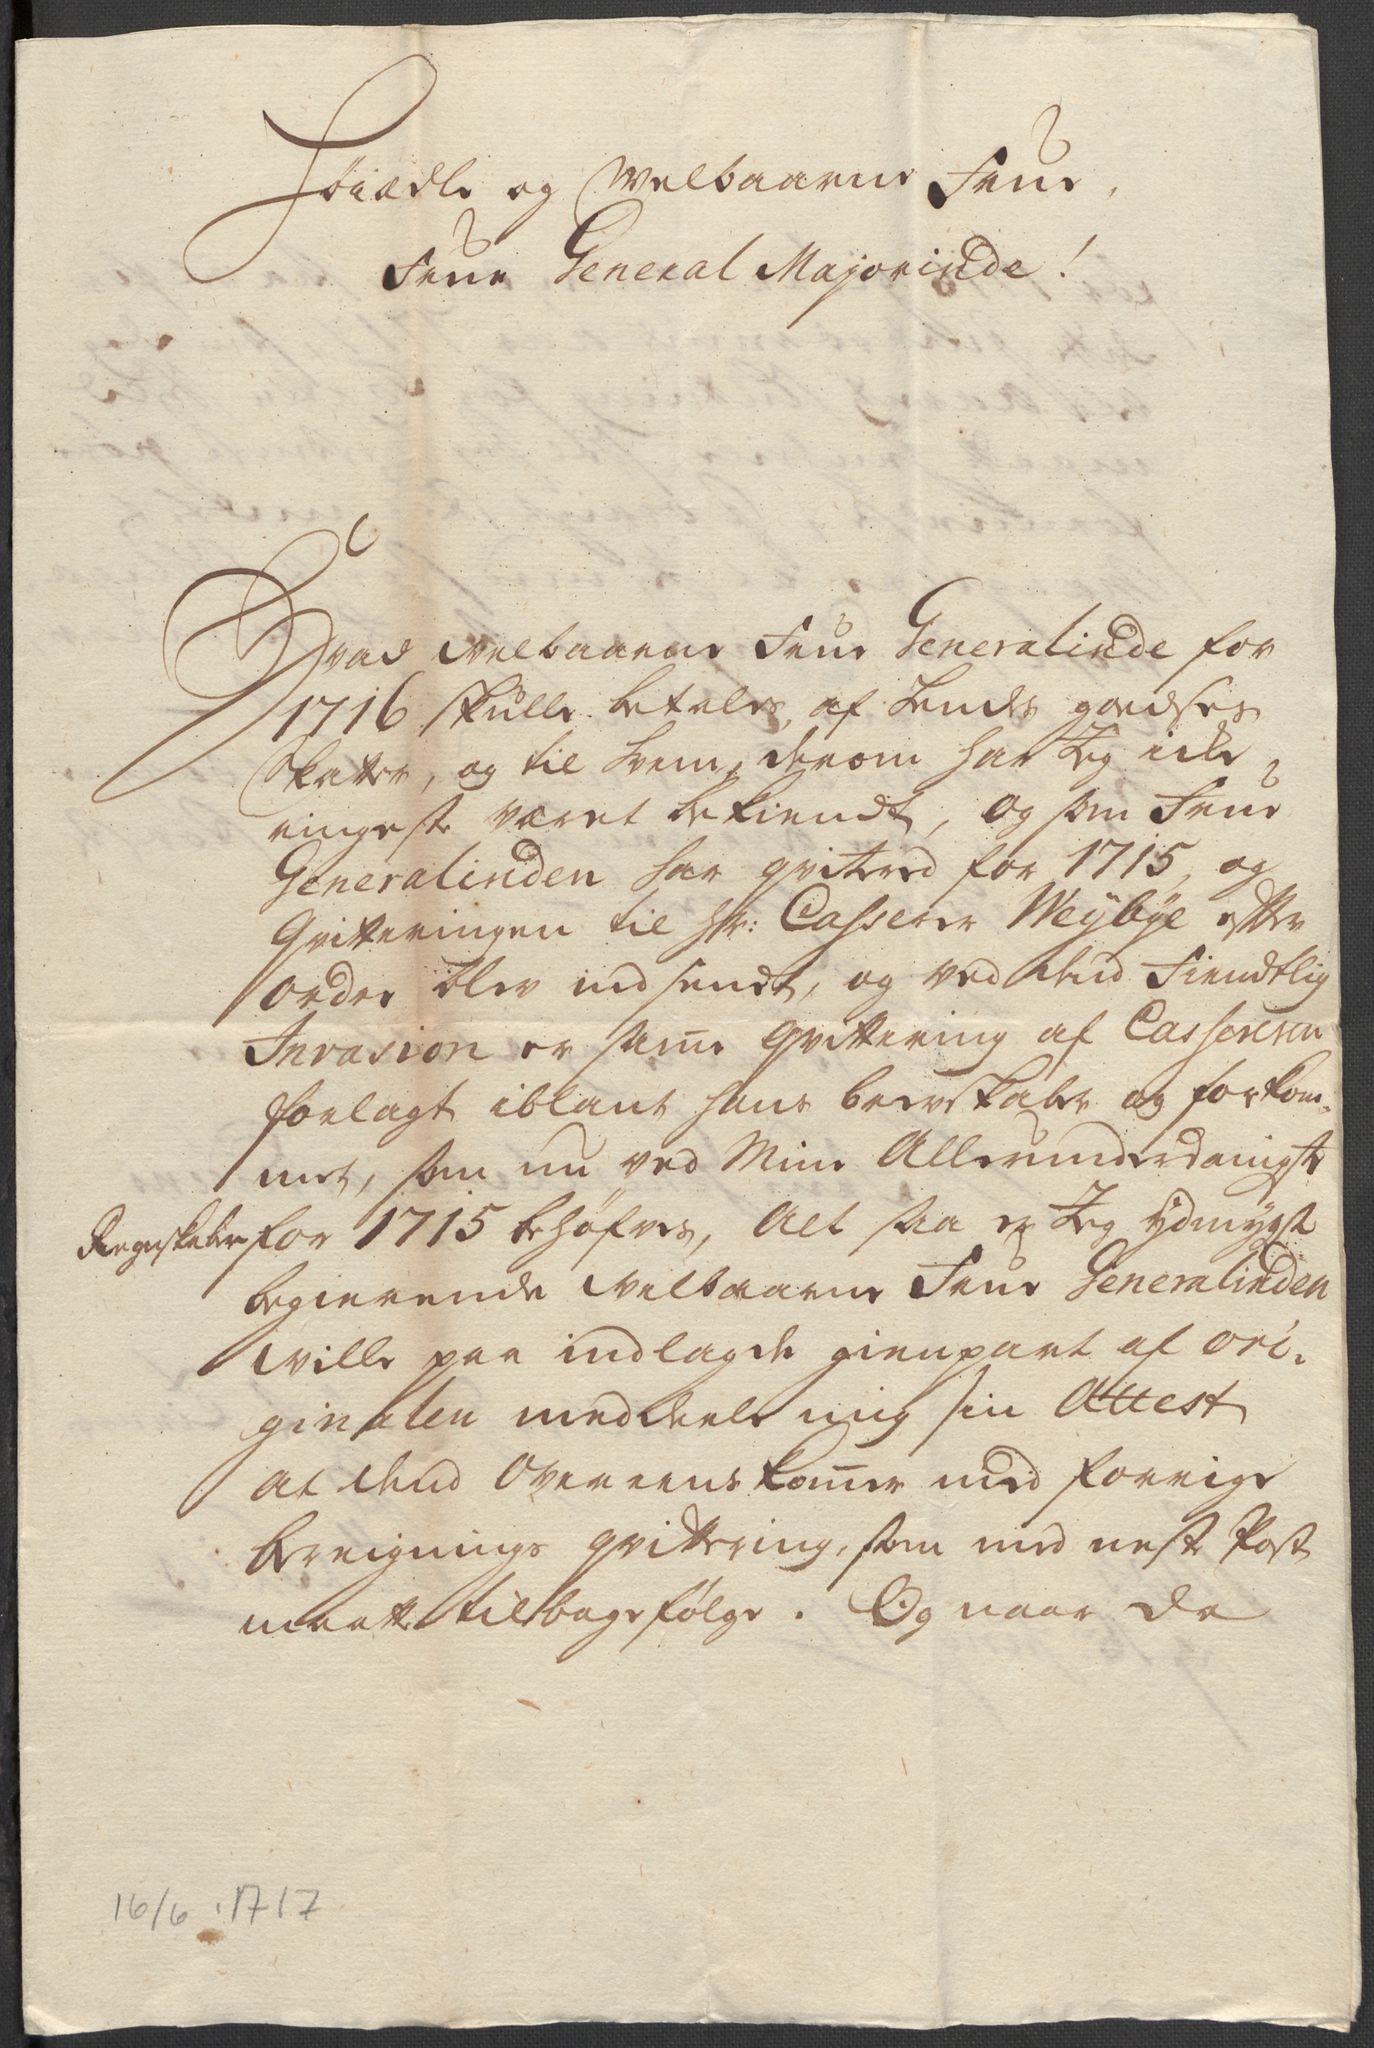 Høiædle og Welbaarne Frue,
Frue General Majorinde!
Hvad Welbaarne Frue Generalinde for
1716 skulle betales af Hendes goedses
Skatter, og til hvem, derom har Jeg icke
ringeste været bekiendt, og som Frue
Generalinden har qvitered for 1715, og
Qvitteringen til Hr: Casserer Weybye efter
ordre blev indsendt, og ved dend Fiendtlig
Invasion er sam̄e Qvittering af Casseeren
forlagt iblant hans brevskaber og forkom-
met, som nu ved Mine Allerunderdanigste
Regnskaber for 1715 behøfves, Alt saa er Jeg ydmygst
begierende Velbaarne Frue Generalinden
wille paa indlagde gienpart af ori-
ginalen meddeele mig sin Attest
at dend Overeenskom̄er med forrige
bereignings qvittering, som med neste Post
maatte tilbagefølge. Og naar de
16/6 1717